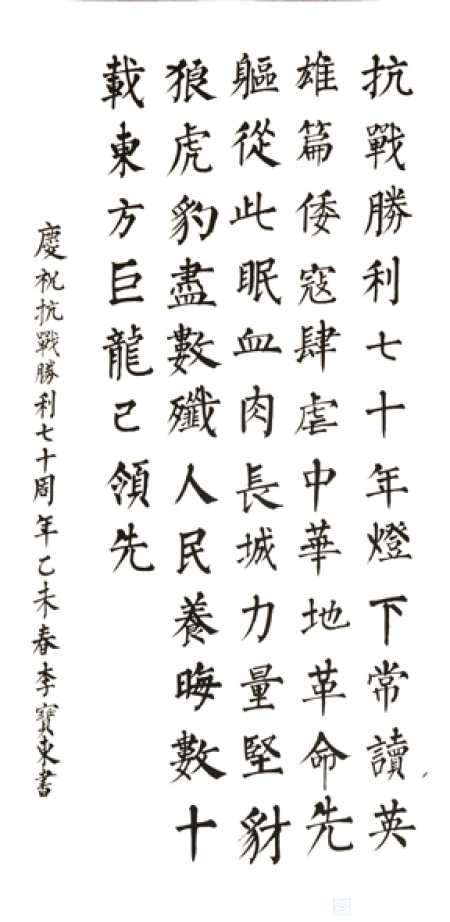 抗戰勝利七十年燈下常讀英
雄篇倭寇肆虐中華地革命先
軀從此眠血肉長城力量堅豺
狼虎豹盡數殲人民養晦數十
載東方巨龍已領先
慶祝抗戰勝利七十周年乙未春李寶東書